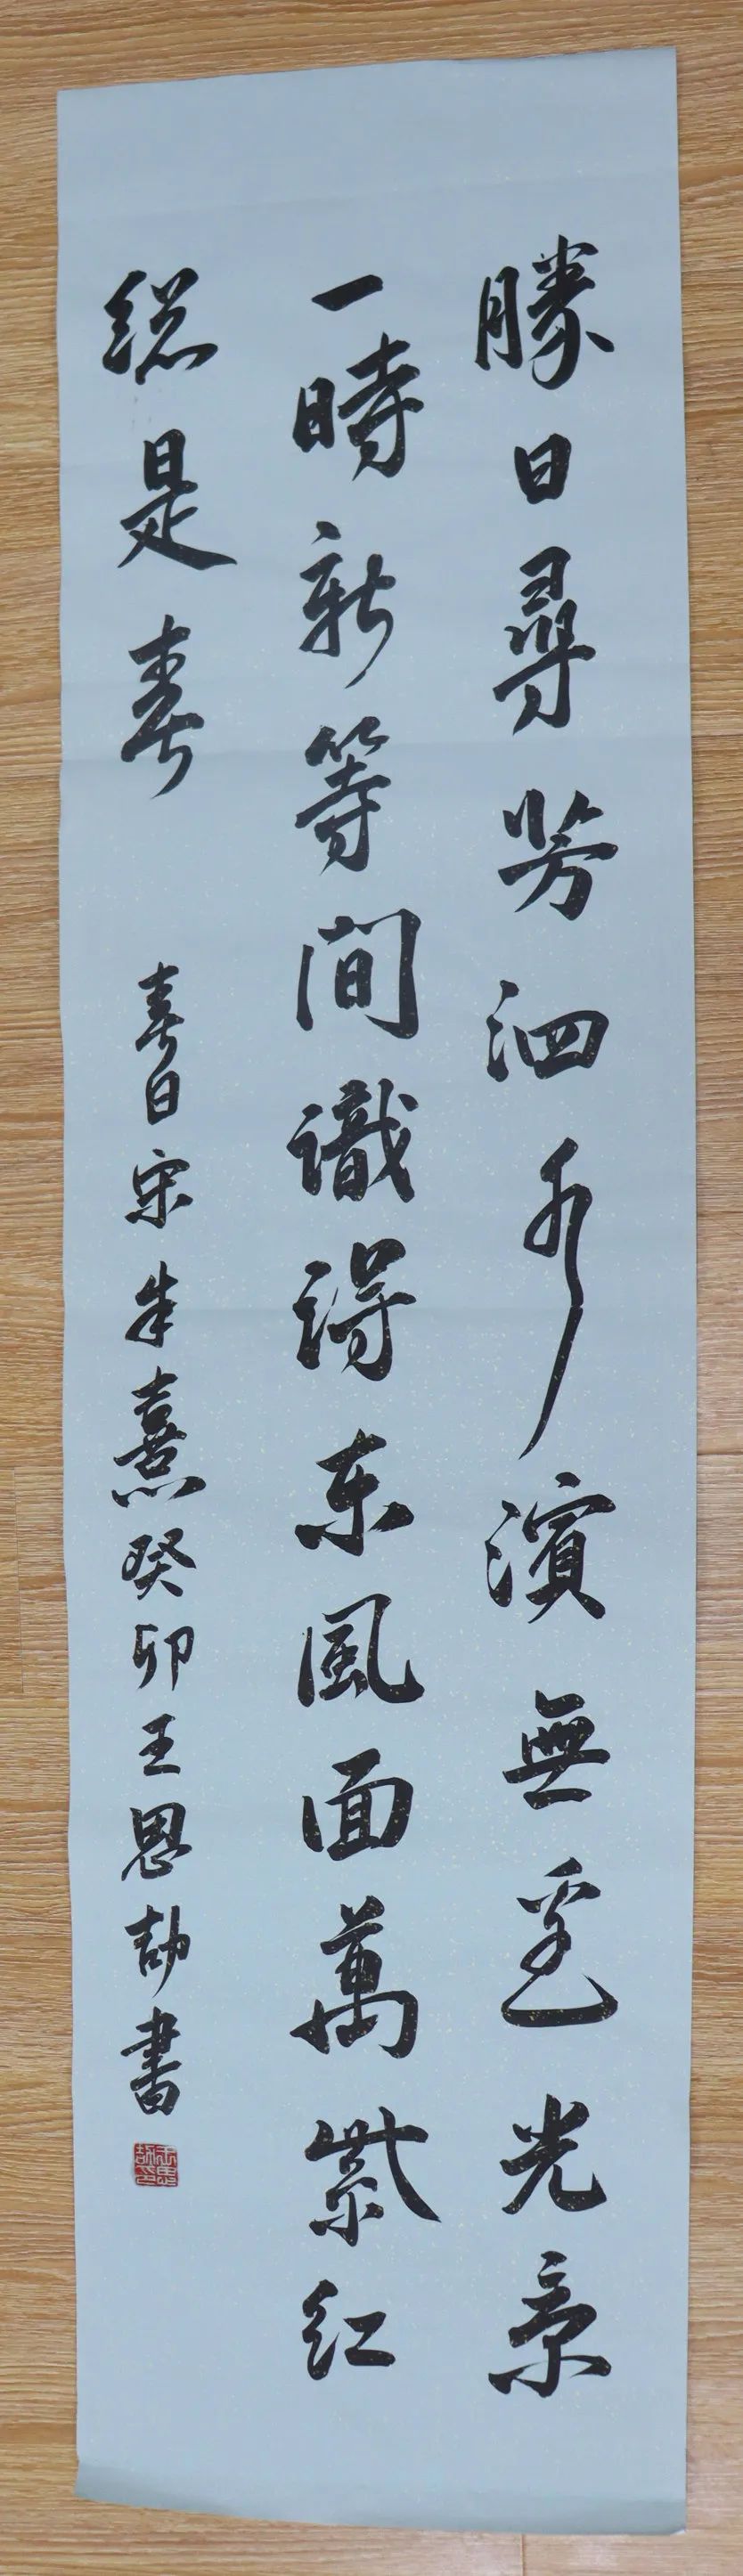 勝日尋芳泗水濱無邊光景
一時新等間識得东風面萬紫红
總是春 春日宋朱熹癸卯王思劼書
王思劼印